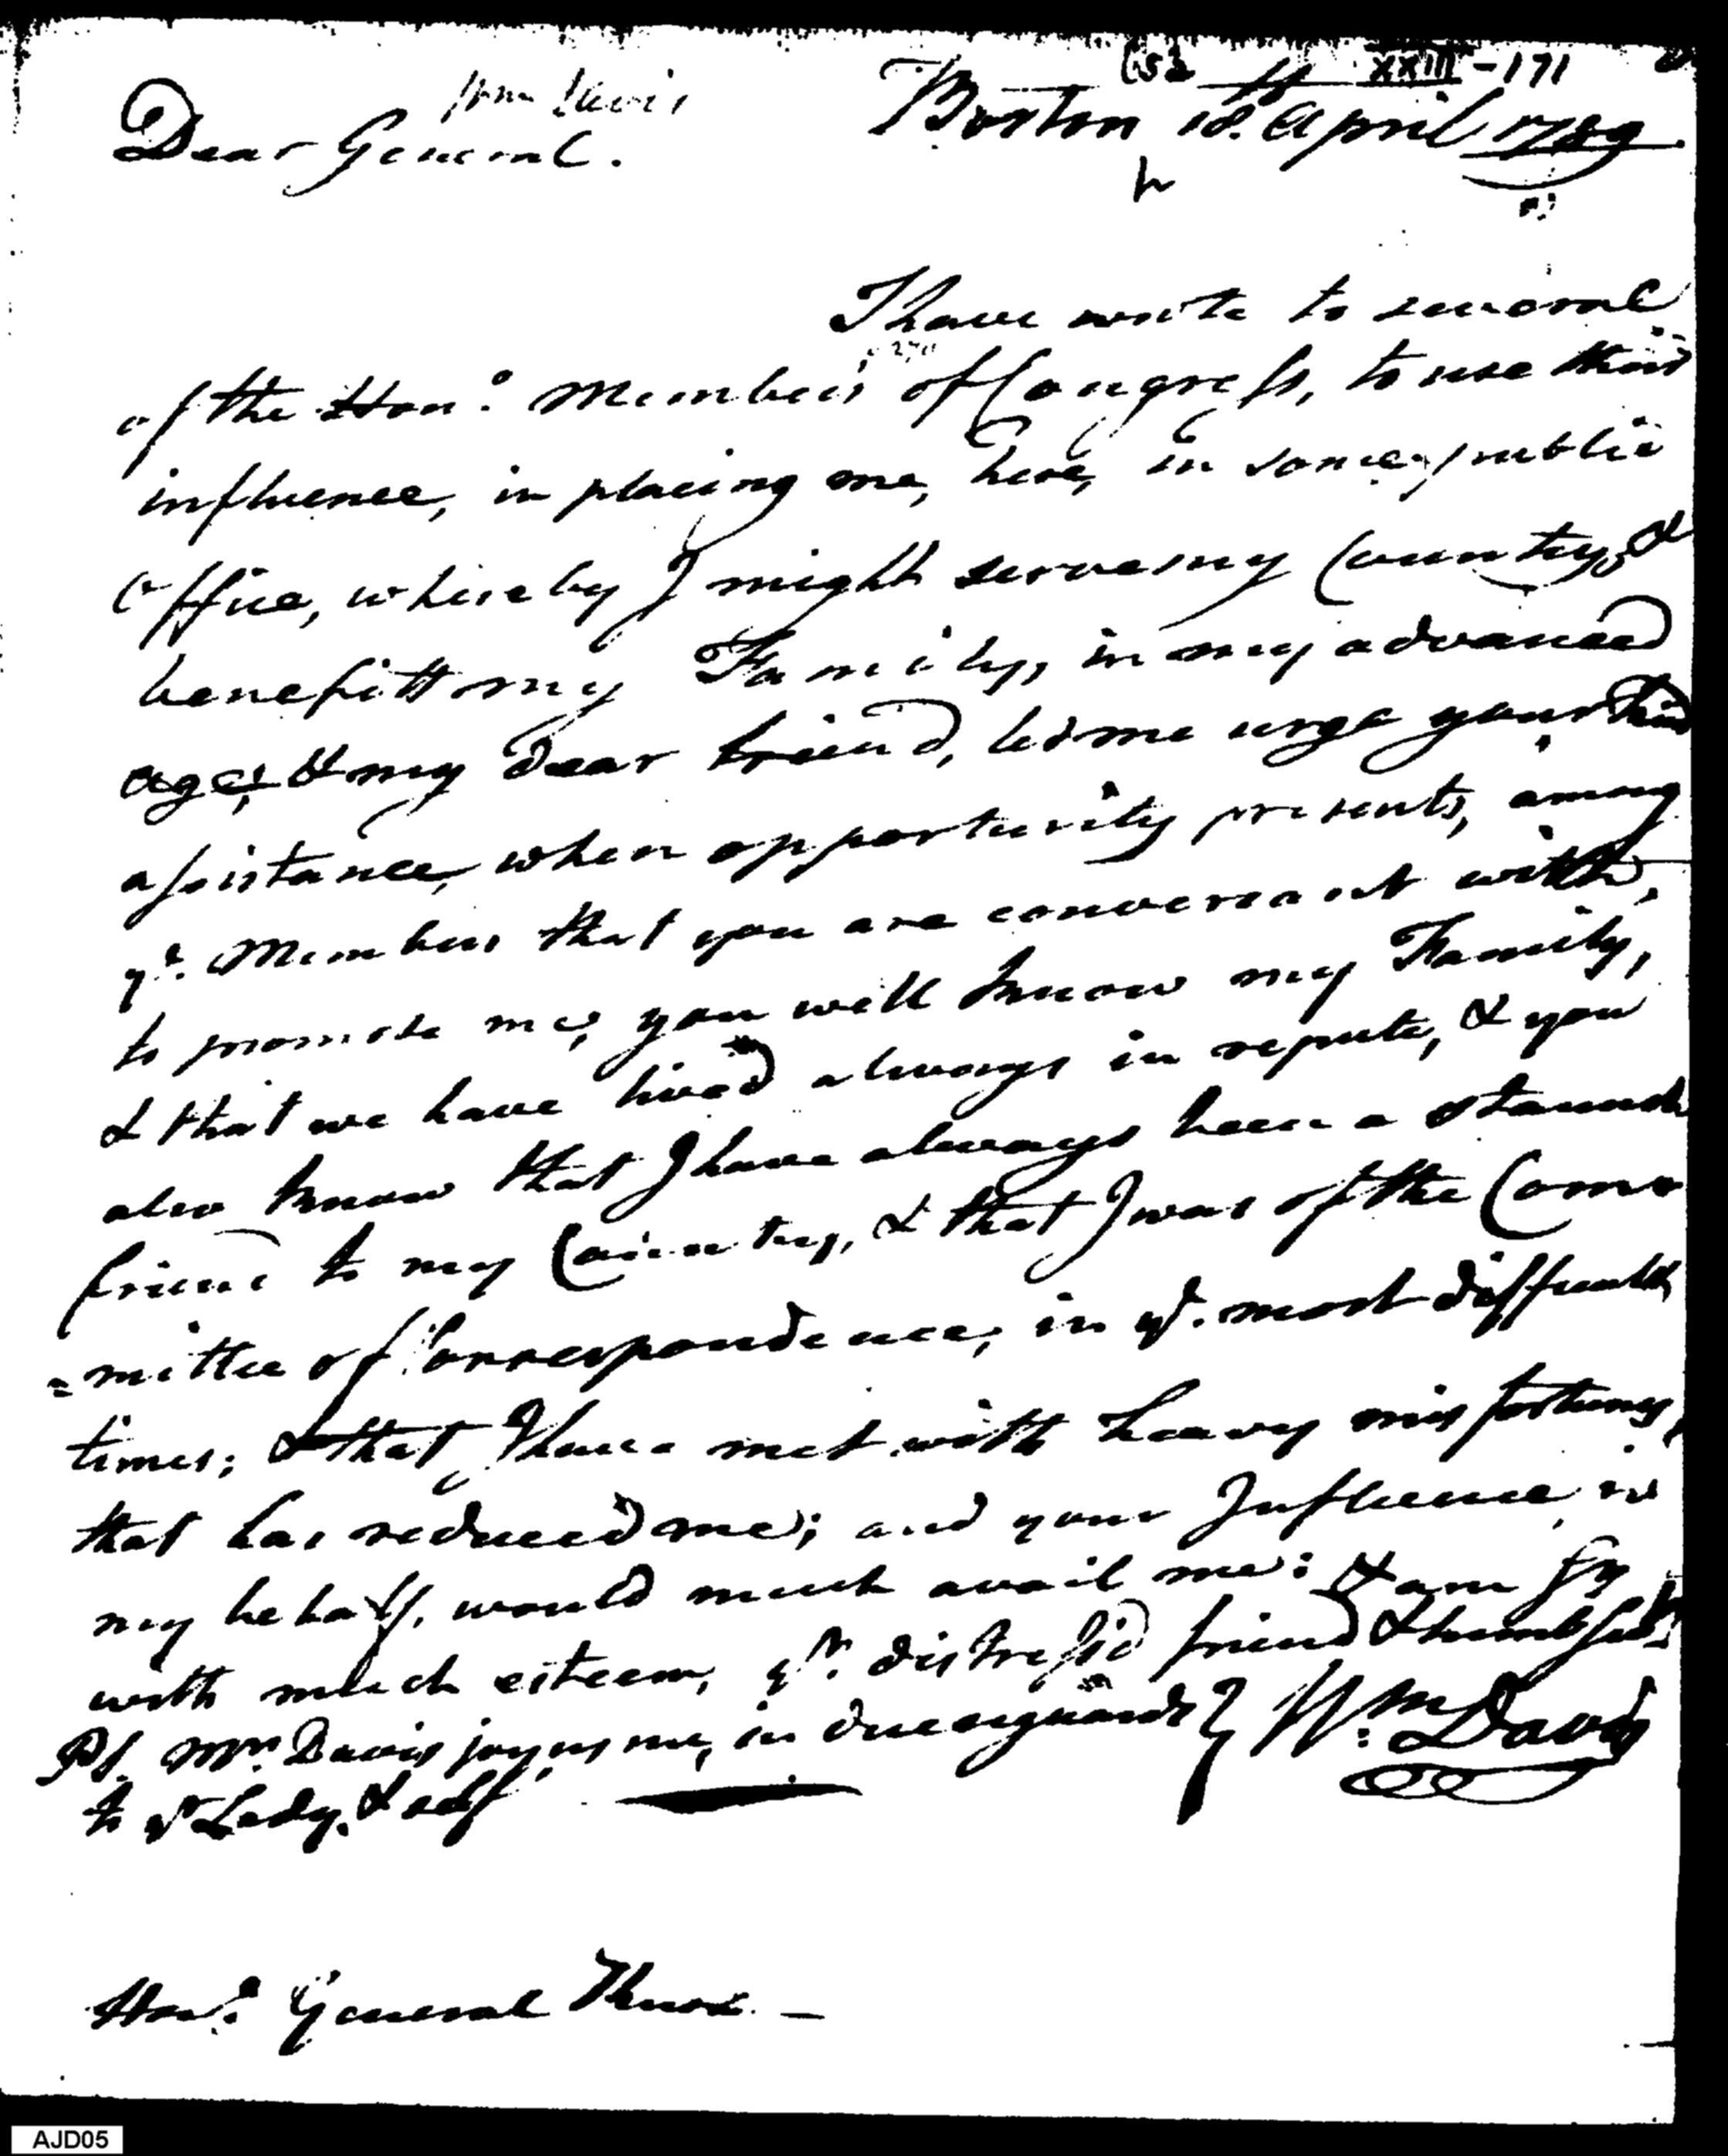 XXIII-171
Wm Davis
Boston 18th April 1789.
Dear General.
I have wrote to several
of the Hon.o Members of Congress, to use their
influence, in placing me, here, in some public
Office, whereby I might serve my Country, &
benefitt my Family, in my advanced
age; & my dear friend, let me urge your kind
assistance, when opportunity presents, among
ye. Members that you are conversant with,
to promote me, you well know my Family,
& that we have lived always in repute, & you
also know that I have always been a staunch
friend to my Country, & that I was of the Com
=mittee of Correspondence, in ye. most difficult
times; & that I have met with heavy misfortunes,
that has reduced me; and your Influence in
my behalf, would much avail me: & am
with much esteem, yr. distress'd friend & humb
Ps. Mrs Davis joyns me, in due reguards } Wm: Davis
to yr Lady, & self
Hon.o General Knox. —
AJD05